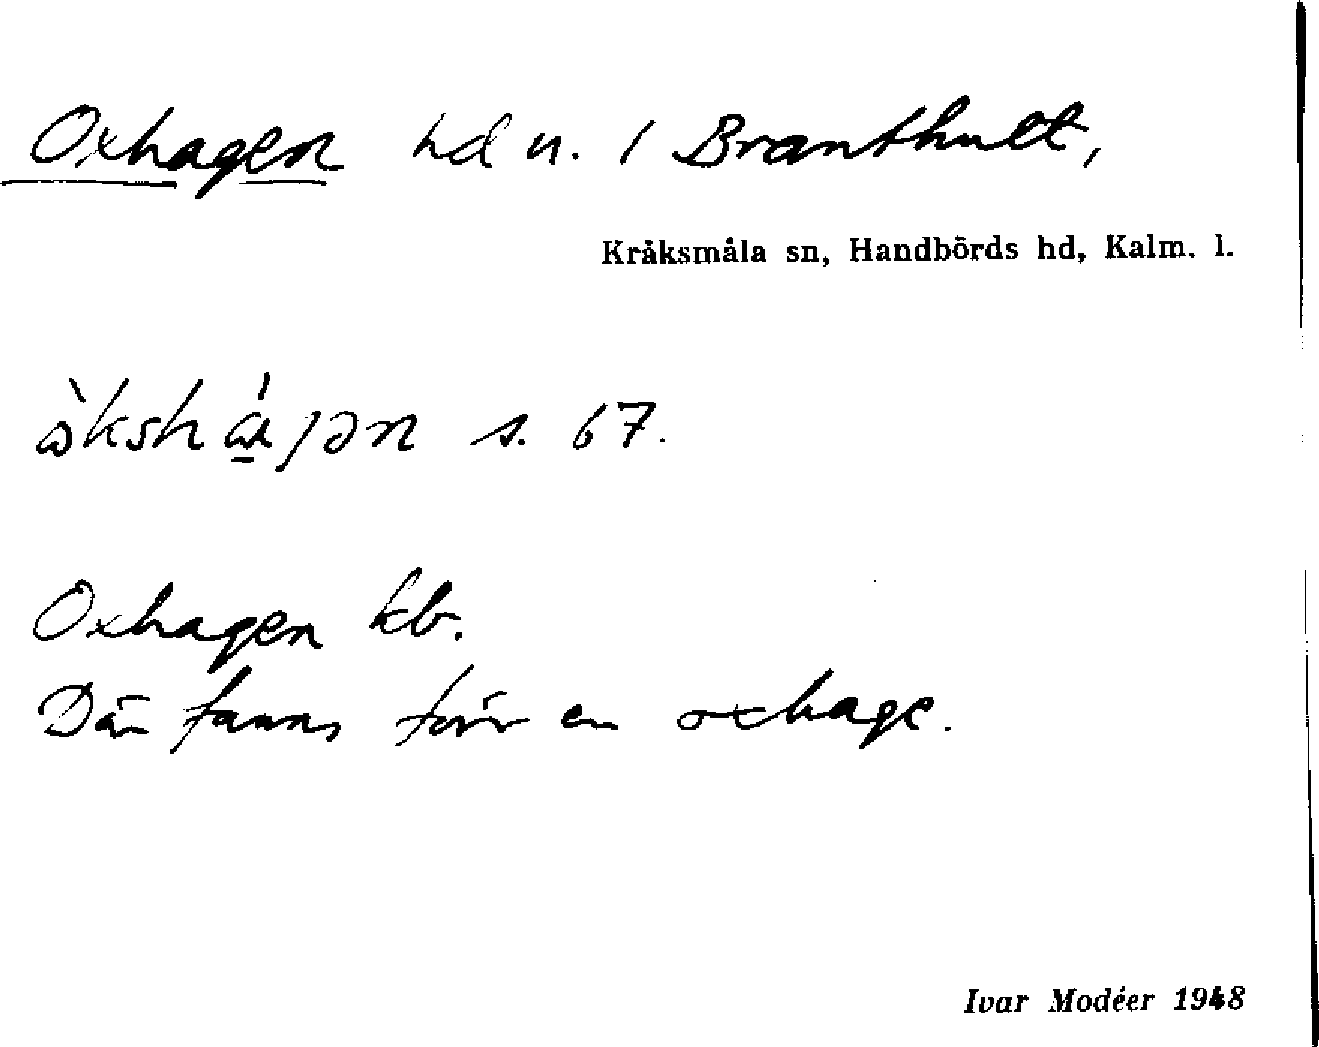 Oxhagen hd n. / Branthult,
Kråksmåla sn, Handbörds hd, Kalm. l.
s. 67.
Oxhagen kb.
Där fanns förr en oxhage.
Ivar Modéer 1948